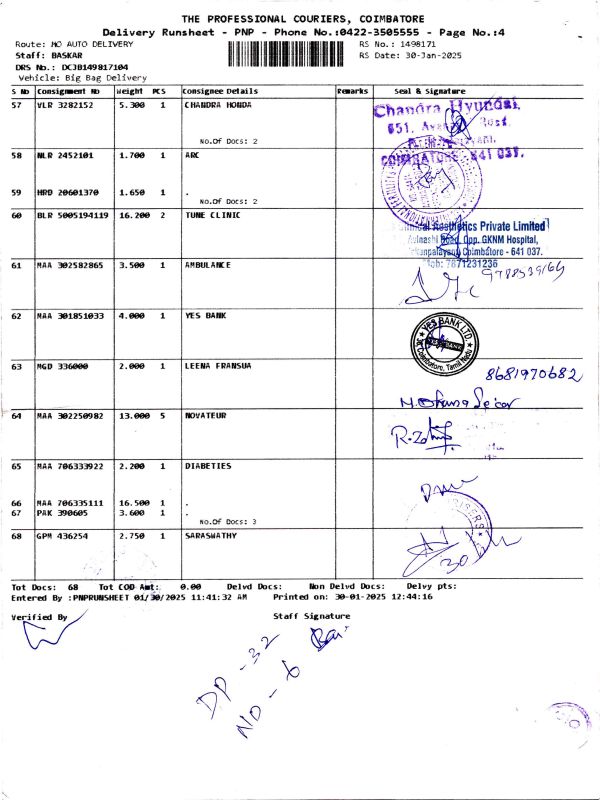 THE PROFESSIONAL COURIERS, COIMBATORE
Delivery Runsheet - PNP - Phone No.:0422-3505555 - Page No.:4
Route: MO AUTO DELIVERY RS No.: 1498171
Staff: BASKAR RS Date: 30-Jan-2025
DRS No.: DC3B149817104
Vehicle: Big Bag Delivery
S No Consignment No Weight PCS Consignee Details Remarks Seal & Signature
57 VLR 3282152 5.300 1 CHANDRA HONDA
Chandra Hyundai,
No.Of Docs: 2
58 NLR 2452101 1.700 1 ARC
COIMBATORE 641 037.
59 HRD 20601370 1.650 1 .
No.Of Docs: 2
60 BLR 5005194119 16.200 2 TUNE CLINIC
Aesthetics Private Limited
Avinashi Road, Opp. GKNM Hospital,
Coimbatore - 641 037.
Mob: 7871231236
61 MAA 302582865 3.500 1 AMBULANCE
62 MAA 301851033 4.000 1 YES BANK
YES BANK LTD.
Coimbatore, Tamil Nadu
63 MGD 336000 2.000 1 LEENA FRANSUA
8681970682
64 MAA 302250982 13.000 5 NOVATEUR
65 MAA 706333922 2.200 1 DIABETIES
66 MAA 706335111 16.500 1 .
67 PAK 390605 3.600 1 .
No.Of Docs: 3
68 GPM 436254 2.750 1 SARASWATHY
30
Tot Docs: 68 Tot COD Amt: 0.00 Delvd Docs: Non Delvd Docs: Delvy pts:
Entered By :PNPRUNSHEET 01/30/2025 11:41:32 AM Printed on: 30-01-2025 12:44:16
Verified By Staff Signature
DP - 32
NO - 6